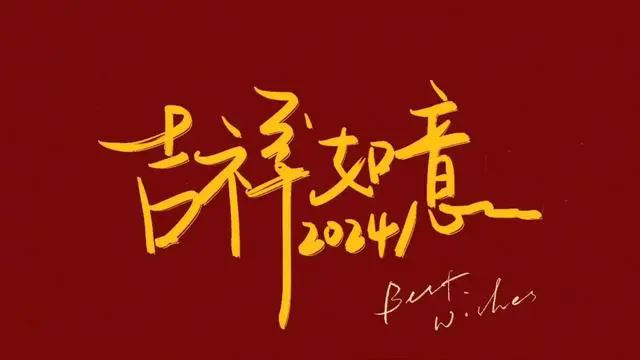 吉祥如意
2024
Best
wishes